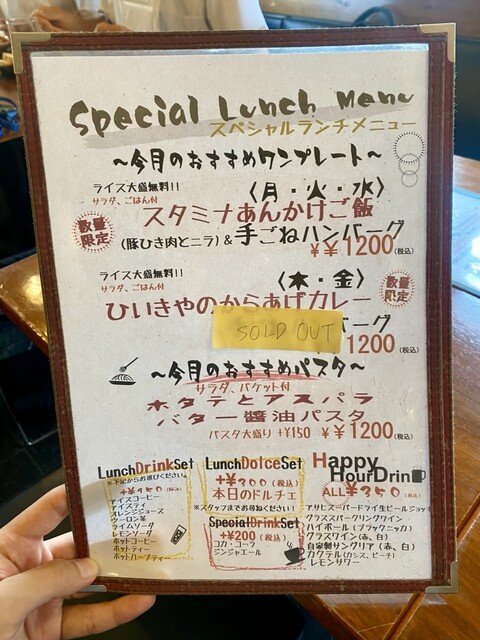 Special Lunch Menu
スペシャルランチメニュー
～今月のおすすめワンプレート～
ライス大盛無料!!
サラダ、ごはん付
〈月・火・水〉
数量限定
スタミナあんかけご飯
(豚ひき肉とニラ)&手ごねハンバーグ
¥1200(税込)
ライス大盛無料!!
サラダ、ごはん付
〈木・金〉
数量限定
ひいきやのからあげカレー
SOLD OUT
バーグ
1200(税込)
～今月のおすすめパスタ～
サラダ、バケット付
ホタテとアスパラ
バター醤油パスタ
パスタ大盛り +¥150 ¥1200(税込)
LunchDrinkSet
※下記からお選びください
+¥150(税込)
アイスコーヒー
アイスティ
オレンジジュース
ウーロン茶
ライムソーダ
レモンソーダ
ホットコーヒー
ホットティー
ホットハーブティー
LunchDolceSet
+¥300(税込)
本日のドルチェ
※スタッフまでお尋ねください!
SpecialDrinkSet
+¥200(税込)
コカ・コーラ
ジンジャエール
Happy
HourDrin
ALL¥350(税込)
アサヒスーパードライ生ビールジョッキ
グラススパークリングワイン
ハイボール(ブラックニッカ)
グラスワイン(赤、白)
自家製サングリア(赤、白)
カクテル(カシス、ピーチ)
レモンサワー